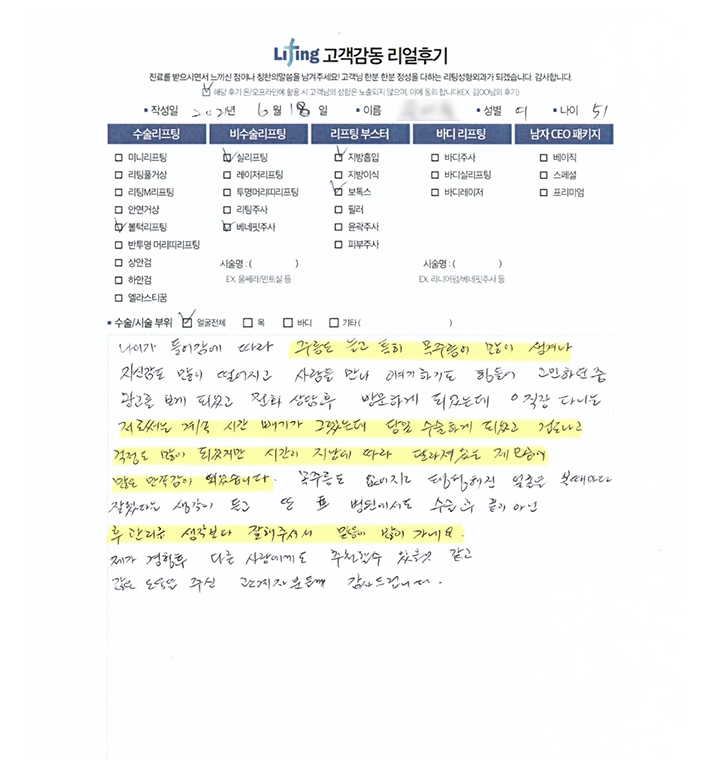 Lifting 고객감동 리얼후기
진료를 받으시면서 느끼신 점이나 칭찬의말씀을 남겨주세요! 고객님 한분 한분 정성을 다하는 리팅성형외과가 되겠습니다. 감사합니다.
해당 후기 온/오프라인에 활용 시 고객님의 성함은 노출되지 않으며, 이에 동의 합니다.(EX. 김OO님의 후기)
작성일 2021년 6월 18일 이름 성별 여 나이 51
수술리프팅 비수술리프팅 리프팅 부스터 바디 리프팅 남자 CEO 패키지
미니리프팅 실리프팅 지방흡입 바디주사 베이직
리팅풀거상 레이저리프팅 지방이식 바디실리프팅 스페셜
리팅M리프팅 투명머리띠리프팅 보톡스 바디레이저 프리미엄
안면거상 리팅주사 필러
볼턱리프팅 베네핏주사 윤곽주사
반투명 머리띠리프팅 피부주사
상안검 시술명 : ( ) 시술명 : ( )
하안검 EX. 울쎄라/민트실 등 EX. 리니어펌/베네핏주사 등
엘라스티꿈
수술/시술 부위 얼굴전체 목 바디 기타 ( )
나이가 들어감에 따라 주름도 늘고 특히 목주름이 많이 생겨나
자신감도 많이 떨어지고 사람을 만나 얘기하기도 힘들어 고민하던중
광고를 보게 되었고 전화 상담후 방문하게 되었는데 직장 다니는
저로써는 계속 시간 빼기가 그랬는데 당일 수술하게 되었고 겁도나고
걱정도 많이 되었지만 시간이 지남에 따라 달라져있는 제모습에
많은 만족감이 되었습니다. 목주름도 없어지고 탱탱해진 얼굴을 볼때마다
잘했다는 생각이 들고 또 병원에서도 수술 후 끝이 아닌
후 관리를 생각보다 잘해주셔서 믿음이 많이 가네요.
제가 경험후 다른 사람에게도 추천할수 있을것 같고
많은 도움을 주신 관계자분들께 감사드립니다.